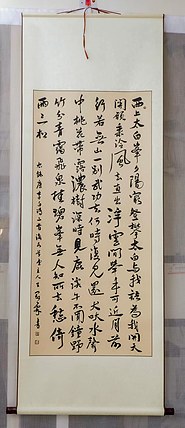 西上太白峰夕陽窮登攀太白與我語為我開天
關願乘泠風去直出浮雲間舉手可近月前
行若無山一別武功去何時復更還犬吠水聲
中桃花帶露濃樹深時見鹿溪午不聞鐘野
竹分青靄飛泉挂碧峰無人知所去愁倚
兩三松